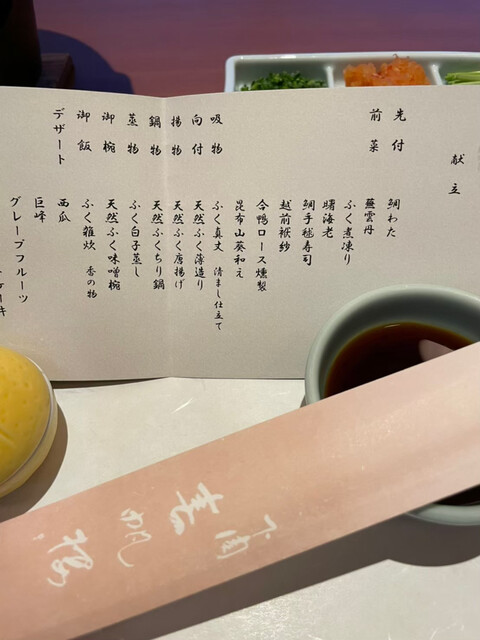 献立
先付 鯛わた
前菜 蕪雲丹
ふく煮凍り
曙海老
鯛手毬寿司
越前袱紗
合鴨ロース燻製
昆布山葵和え
吸物 ふく真丈 清まし仕立て
向付 天然ふく薄造り
揚物 天然ふく唐揚げ
鍋物 天然ふくちり鍋
蒸物 ふく白子蒸し
御椀 天然ふく味噌椀
御飯 ふく雑炊 香の物
デザート 西瓜
巨峰
グレープフルーツ
ケーキ
下関
春帆楼